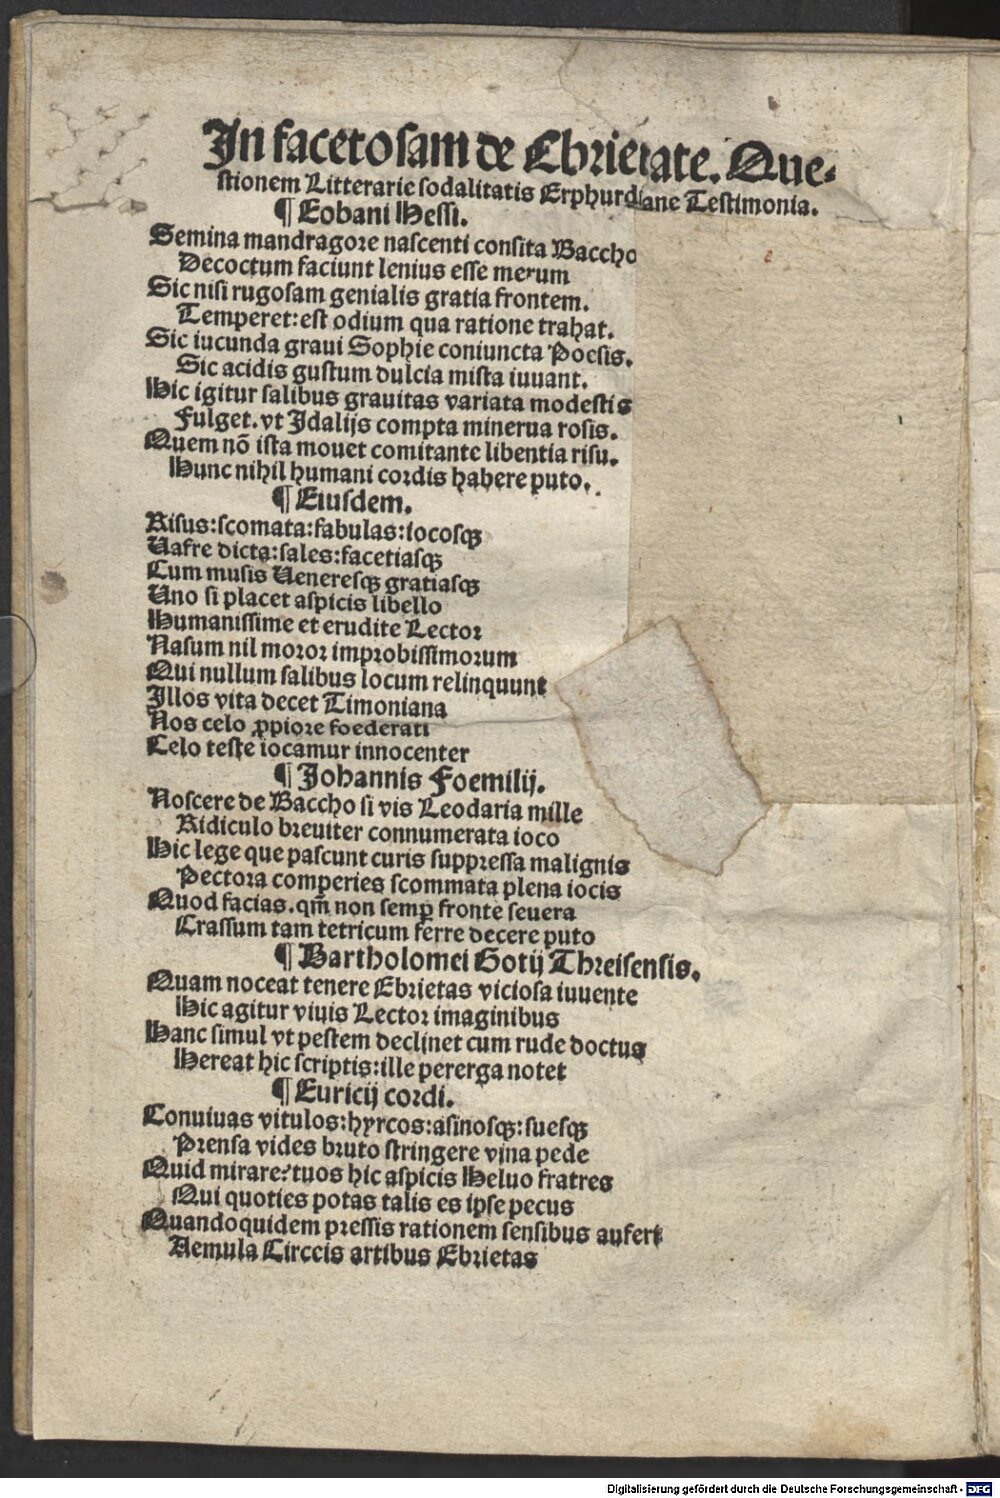 In facetosam de Ebrietate. Que-
stionem Litterarie sodalitatis Erphurdiane Testimonia.
¶ Eobani Hessi.
Semina mandragore nascenti consita Baccho
Decoctum faciunt lenius esse merum
Sic nisi rugosam genialis gratia frontem.
Temperet: est odium qua ratione trahat.
Sic iucunda graui Sophie coniuncta Poesis.
Sic acidis gustum dulcia mista iuuant.
Hic igitur salibus grauitas variata modestis
Fulget. vt Idalijs compta minerua rosis.
Quem nō ista mouet comitante libentia risu.
Hunc nihil humani cordis habere puto.
¶ Eiusdem.
Risus: scomata: fabulas: iocosqꝫ
Uafre dicta: sales: facetiasqꝫ
Cum musis Ueneresqꝫ gratiasqꝫ
Uno si placet aspicis libello
Humanissime et erudite Lector
Nasum nil moror improbissimorum
Qui nullum salibus locum relinquunt
Illos vita decet Timoniana
Nos celo ꝓpiore foederati
Celo teste iocamur innocenter
¶ Johannis Foemilij.
Noscere de Baccho si vis Leodaria mille
Ridiculo breuiter connumerata ioco
Hic lege que pascunt curis suppressa malignis
Pectora comperies scommata plena iocis
Quod facias. qm̄ non semꝑ fronte seuera
Crassum tam tetricum ferre decere puto
¶ Bartholomei Gotij Threisensis.
Quam noceat tenere Ebrietas viciosa iuuente
Hic agitur viuis Lector imaginibus
Hanc simul vt pestem declinet cum rude doctus
Hereat hic scriptis: ille pererga notet
¶ Euricij cordi.
Conuiuas vitulos: hyrcos: asinosqꝫ: suesqꝫ
Prensa vides bruto stringere vina pede
Quid mirare? tuos hic aspicis Heluo fratres
Qui quoties potas talis es ipse pecus
Quandoquidem pressis rationem sensibus aufert
Aemula Circeis artibus Ebrietas
Digitalisierung gefördert durch die Deutsche Forschungsgemeinschaft - DFG